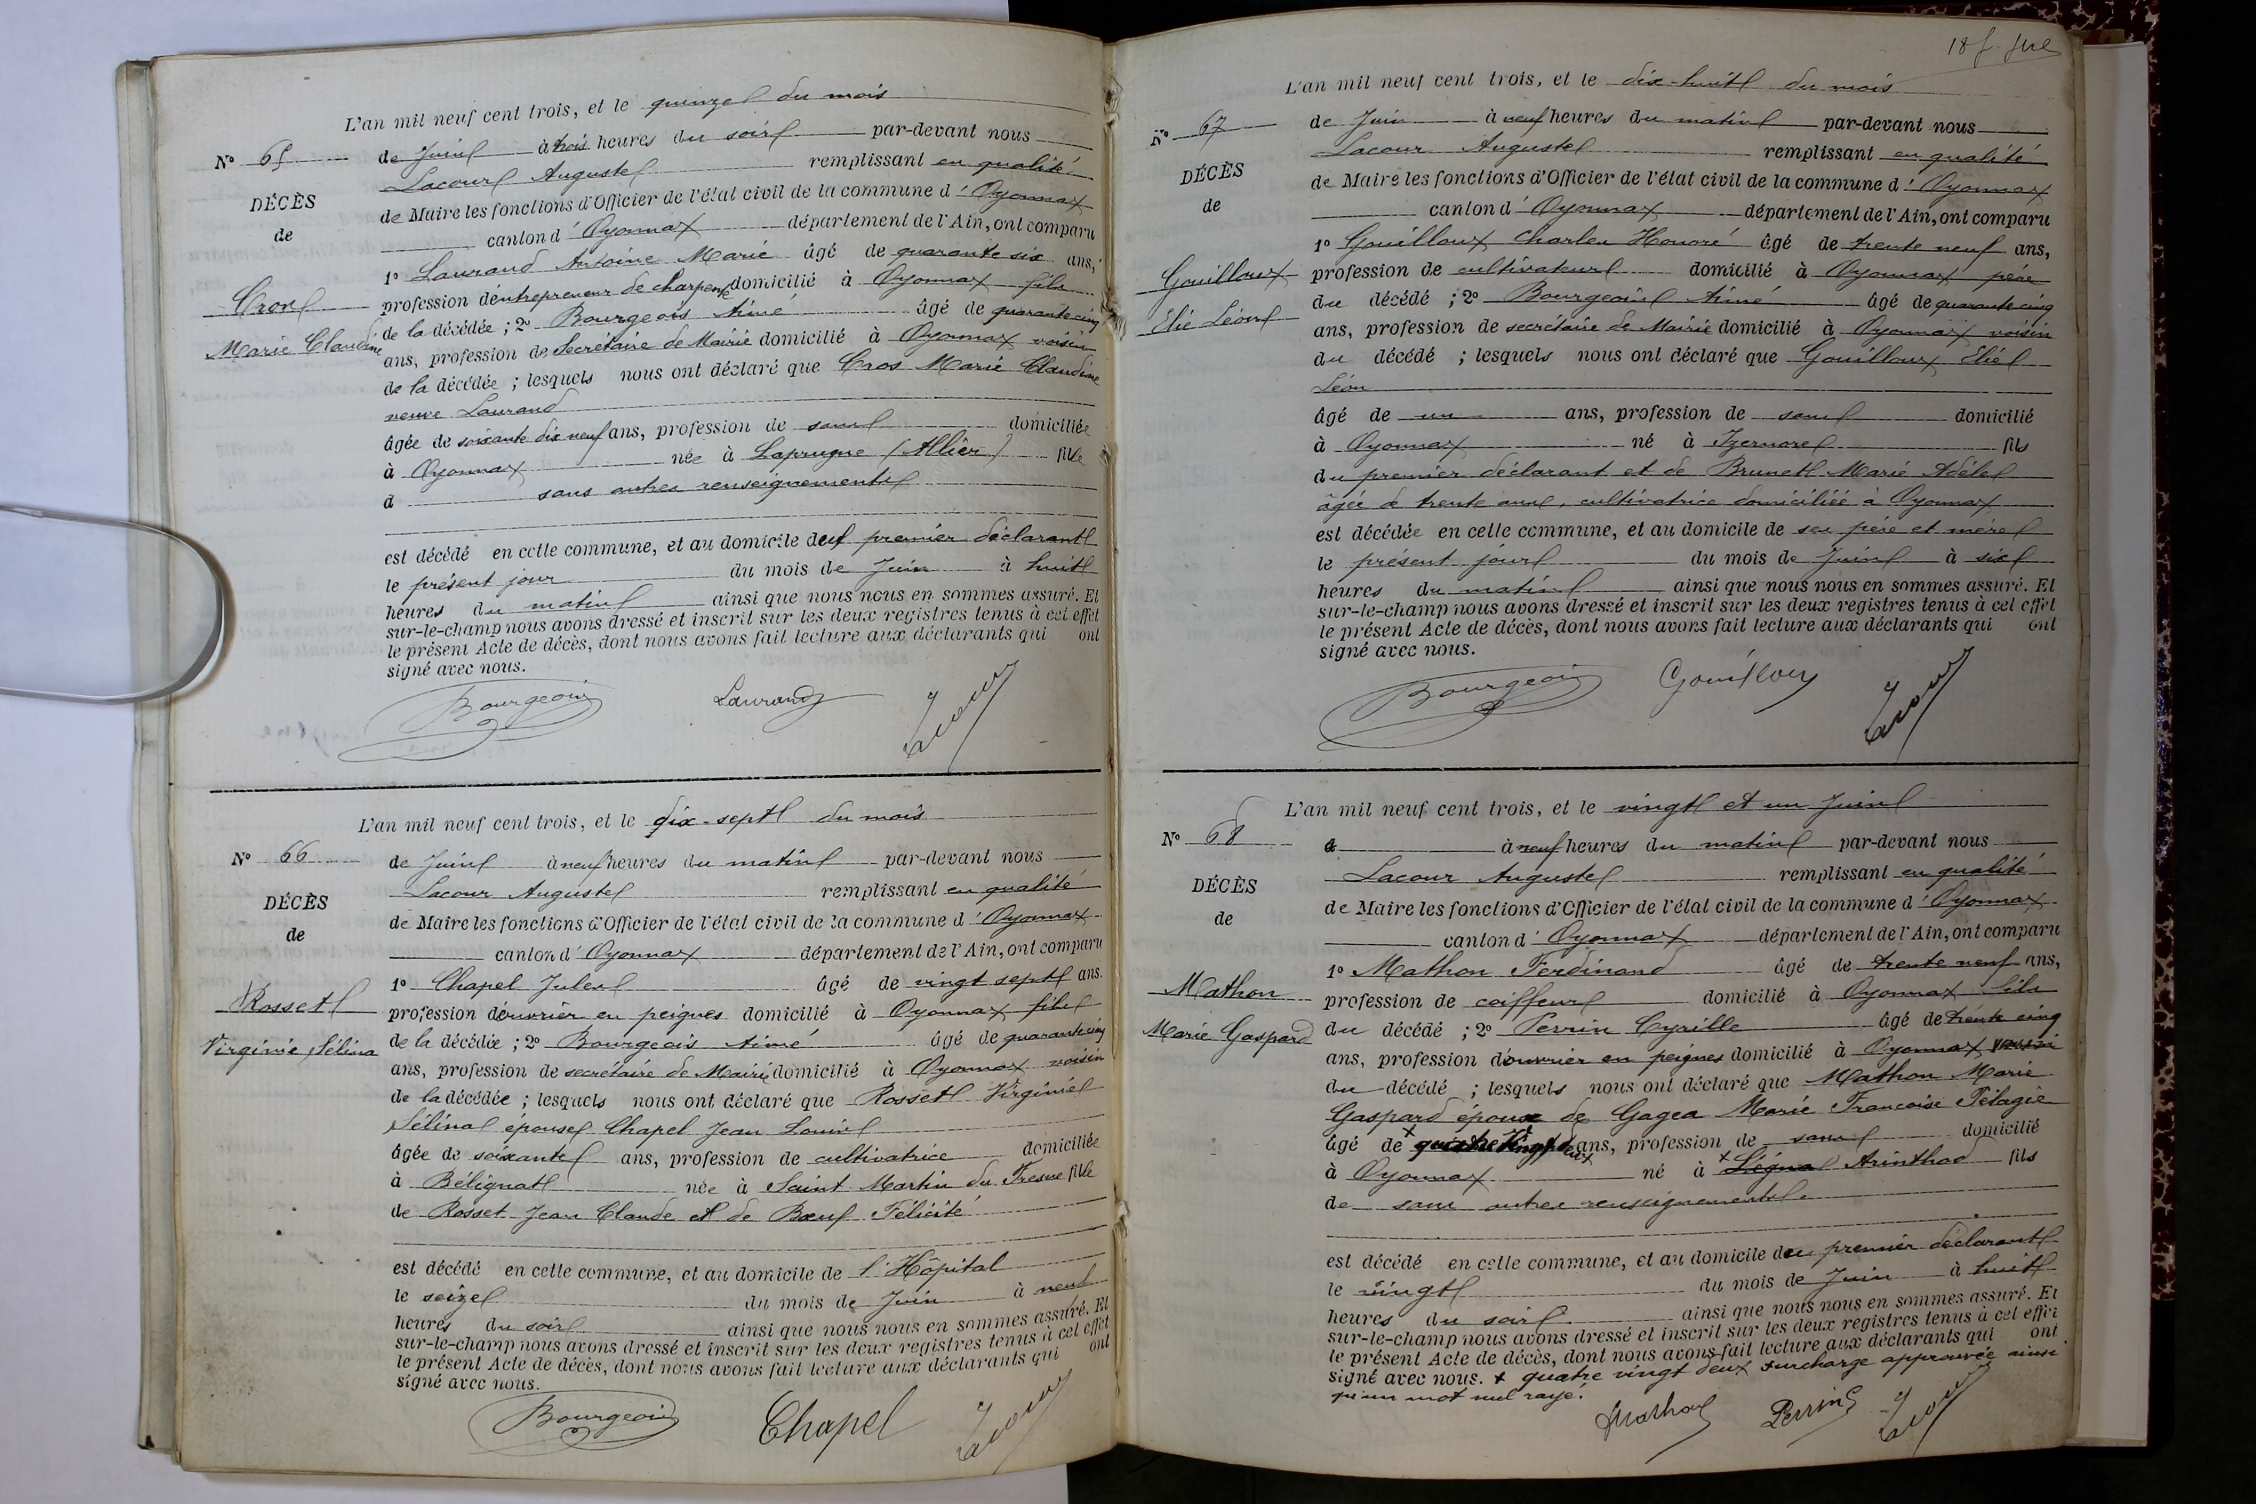 L'an mil neuf cent trois, et le quinze du mois
N° 65
de Juin à trois heures du soir par-devant nous
Lacour Auguste remplissant en qualité
DÉCÈS
de Maire les fonctions d'Officier de l'état civil de la commune d'Oyonnax
de
canton d'Oyonnax département de l'Ain, ont comparu
1° Laurand Antoine Marie âgé de quarante six ans,
Cros
profession d'entrepreneur de charpente domicilié à Oyonnax fils
de la décédée ; 2° Bourgeois Aimé âgé de quarante cinq
Marie Claudine
ans, profession de Secrétaire de Mairie domicilié à Oyonnax voisin
de la décédée ; lesquels nous ont déclaré que Cros Marie Claudine
veuve Laurand
âgée de soixante dix neuf ans, profession de sans domiciliée
à Oyonnax née à Laprugne (Allier) fille
d sans autres renseignements
est décédé en cette commune, et au domicile du premier déclarant
le présent jour du mois de Juin à huit
heures du matin ainsi que nous nous en sommes assuré. Et
sur-le-champ nous avons dressé et inscrit sur les deux registres tenus à cet effet
le présent Acte de décès, dont nous avons fait lecture aux déclarants qui ont
signé avec nous.
Bourgeois Laurand Lacour
L'an mil neuf cent trois, et le dix-sept du mois
N° 66
de Juin à neuf heures du matin par-devant nous
Lacour Auguste remplissant en qualité
DÉCÈS
de Maire les fonctions d'Officier de l'état civil de la commune d'Oyonnax
de
canton d'Oyonnax département de l'Ain, ont comparu
1° Chapel Jules âgé de vingt sept ans.
Rosset
profession d'ouvrier en peignes domicilié à Oyonnax fils
Virginie Sélina
de la décédée ; 2° Bourgeois Aimé âgé de quarante cinq
ans, profession de secrétaire de Mairie domicilié à Oyonnax voisin
de la décédée ; lesquels nous ont déclaré que Rosset Virginie
Sélina épouse Chapel Jean Louis
âgée de soixante ans, profession de cultivatrice domiciliée
à Bélignat née à Saint Martin du Fresne fille
de Rosset Jean Claude et de Bœuf Félicité
est décédé en cette commune, et au domicile de l'Hôpital
le seize du mois de Juin à neuf
heures du soir ainsi que nous nous en sommes assuré. Et
sur-le-champ nous avons dressé et inscrit sur les deux registres tenus à cet effet
le présent Acte de décès, dont nous avons fait lecture aux déclarants qui ont
signé avec nous.
Bourgeois Chapel Lacour
18 f.
L'an mil neuf cent trois, et le dix-huit du mois
N° 67
de Juin à neuf heures du matin par-devant nous
Lacour Auguste remplissant en qualité
DÉCÈS
de Maire les fonctions d'Officier de l'état civil de la commune d'Oyonnax
de
canton d'Oyonnax département de l'Ain, ont comparu
1° Gouilloux Charles Honoré âgé de trente neuf ans,
Gouilloux
profession de cultivateur domicilié à Oyonnax père
du décédé ; 2° Bourgeois Aimé âgé de quarante cinq
Elie Léon
ans, profession de secrétaire de Mairie domicilié à Oyonnax voisin
du décédé ; lesquels nous ont déclaré que Gouilloux Elie
Léon
âgé de un ans, profession de sans domicilié
à Oyonnax né à Izernore fils
du premier déclarant et de Brunet Marie Adèle
âgée de trente ans, cultivatrice domiciliée à Oyonnax
est décédée en cette commune, et au domicile de ses père et mère
le présent jour du mois de Juin à six
heures du matin ainsi que nous nous en sommes assuré. Et
sur-le-champ nous avons dressé et inscrit sur les deux registres tenus à cet effet
le présent Acte de décès, dont nous avons fait lecture aux déclarants qui ont
signé avec nous.
Bourgeois Gouilloux Lacour
L'an mil neuf cent trois, et le vingt et un Juin
N° 68
d à neuf heures du matin par-devant nous
Lacour Auguste remplissant en qualité
DÉCÈS
de Maire les fonctions d'Officier de l'état civil de la commune d'Oyonnax
de
canton d'Oyonnax département de l'Ain, ont comparu
1° Mathon Ferdinand âgé de trente neuf ans,
Mathon
profession de coiffeur domicilié à Oyonnax fils
Marie Gaspard
du décédé ; 2° Perrin Cyrille âgé de trente cinq
ans, profession d'ouvrier en peignes domicilié à Oyonnax voisin
du décédé ; lesquels nous ont déclaré que Mathon Marie
Gaspard époux de Gagea Marie Francoise Pélagie
âgé de x quatre vingt deux ans, profession de sans domicilié
à Oyonnax né à x Légna Arinthod fils
de sans autres renseignements.
est décédé en cette commune, et au domicile du premier déclarant
le vingt du mois de Juin à huit
heures du soir ainsi que nous nous en sommes assuré. Et
sur-le-champ nous avons dressé et inscrit sur les deux registres tenus à cet effet
le présent Acte de décès, dont nous avons fait lecture aux déclarants qui ont
signé avec nous. x quatre vingt deux surcharge approuvée ainsi
qu'un mot nul rayé.
Mathon Perrin Lacour